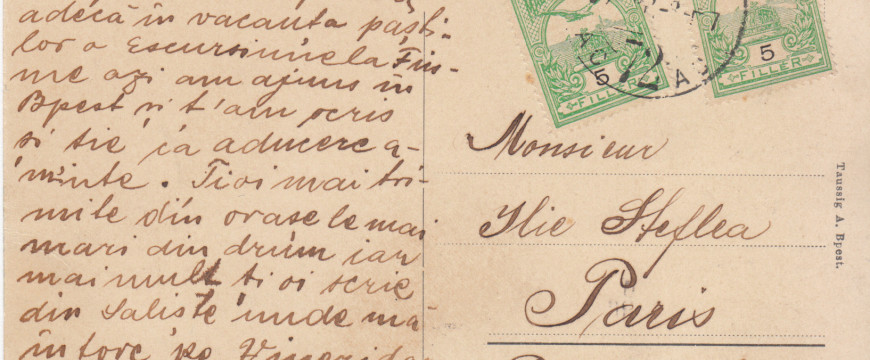 adecă în vacanta paști-
lor o Escursiune la Fiu-
me azi am ajuns în
Bpest si t'am scris
si tie ca aducere a-
minte. Tioi mai tri-
mite din orasele mai
mari din drum iar
mai mult ti oi scrie
din Saliste unde mă
întorc pe Vineri
5
FILLÉR
5
FILLÉR
72
A
Monsieur
Ilie Steflea
Paris
Taussig A. Bpest.